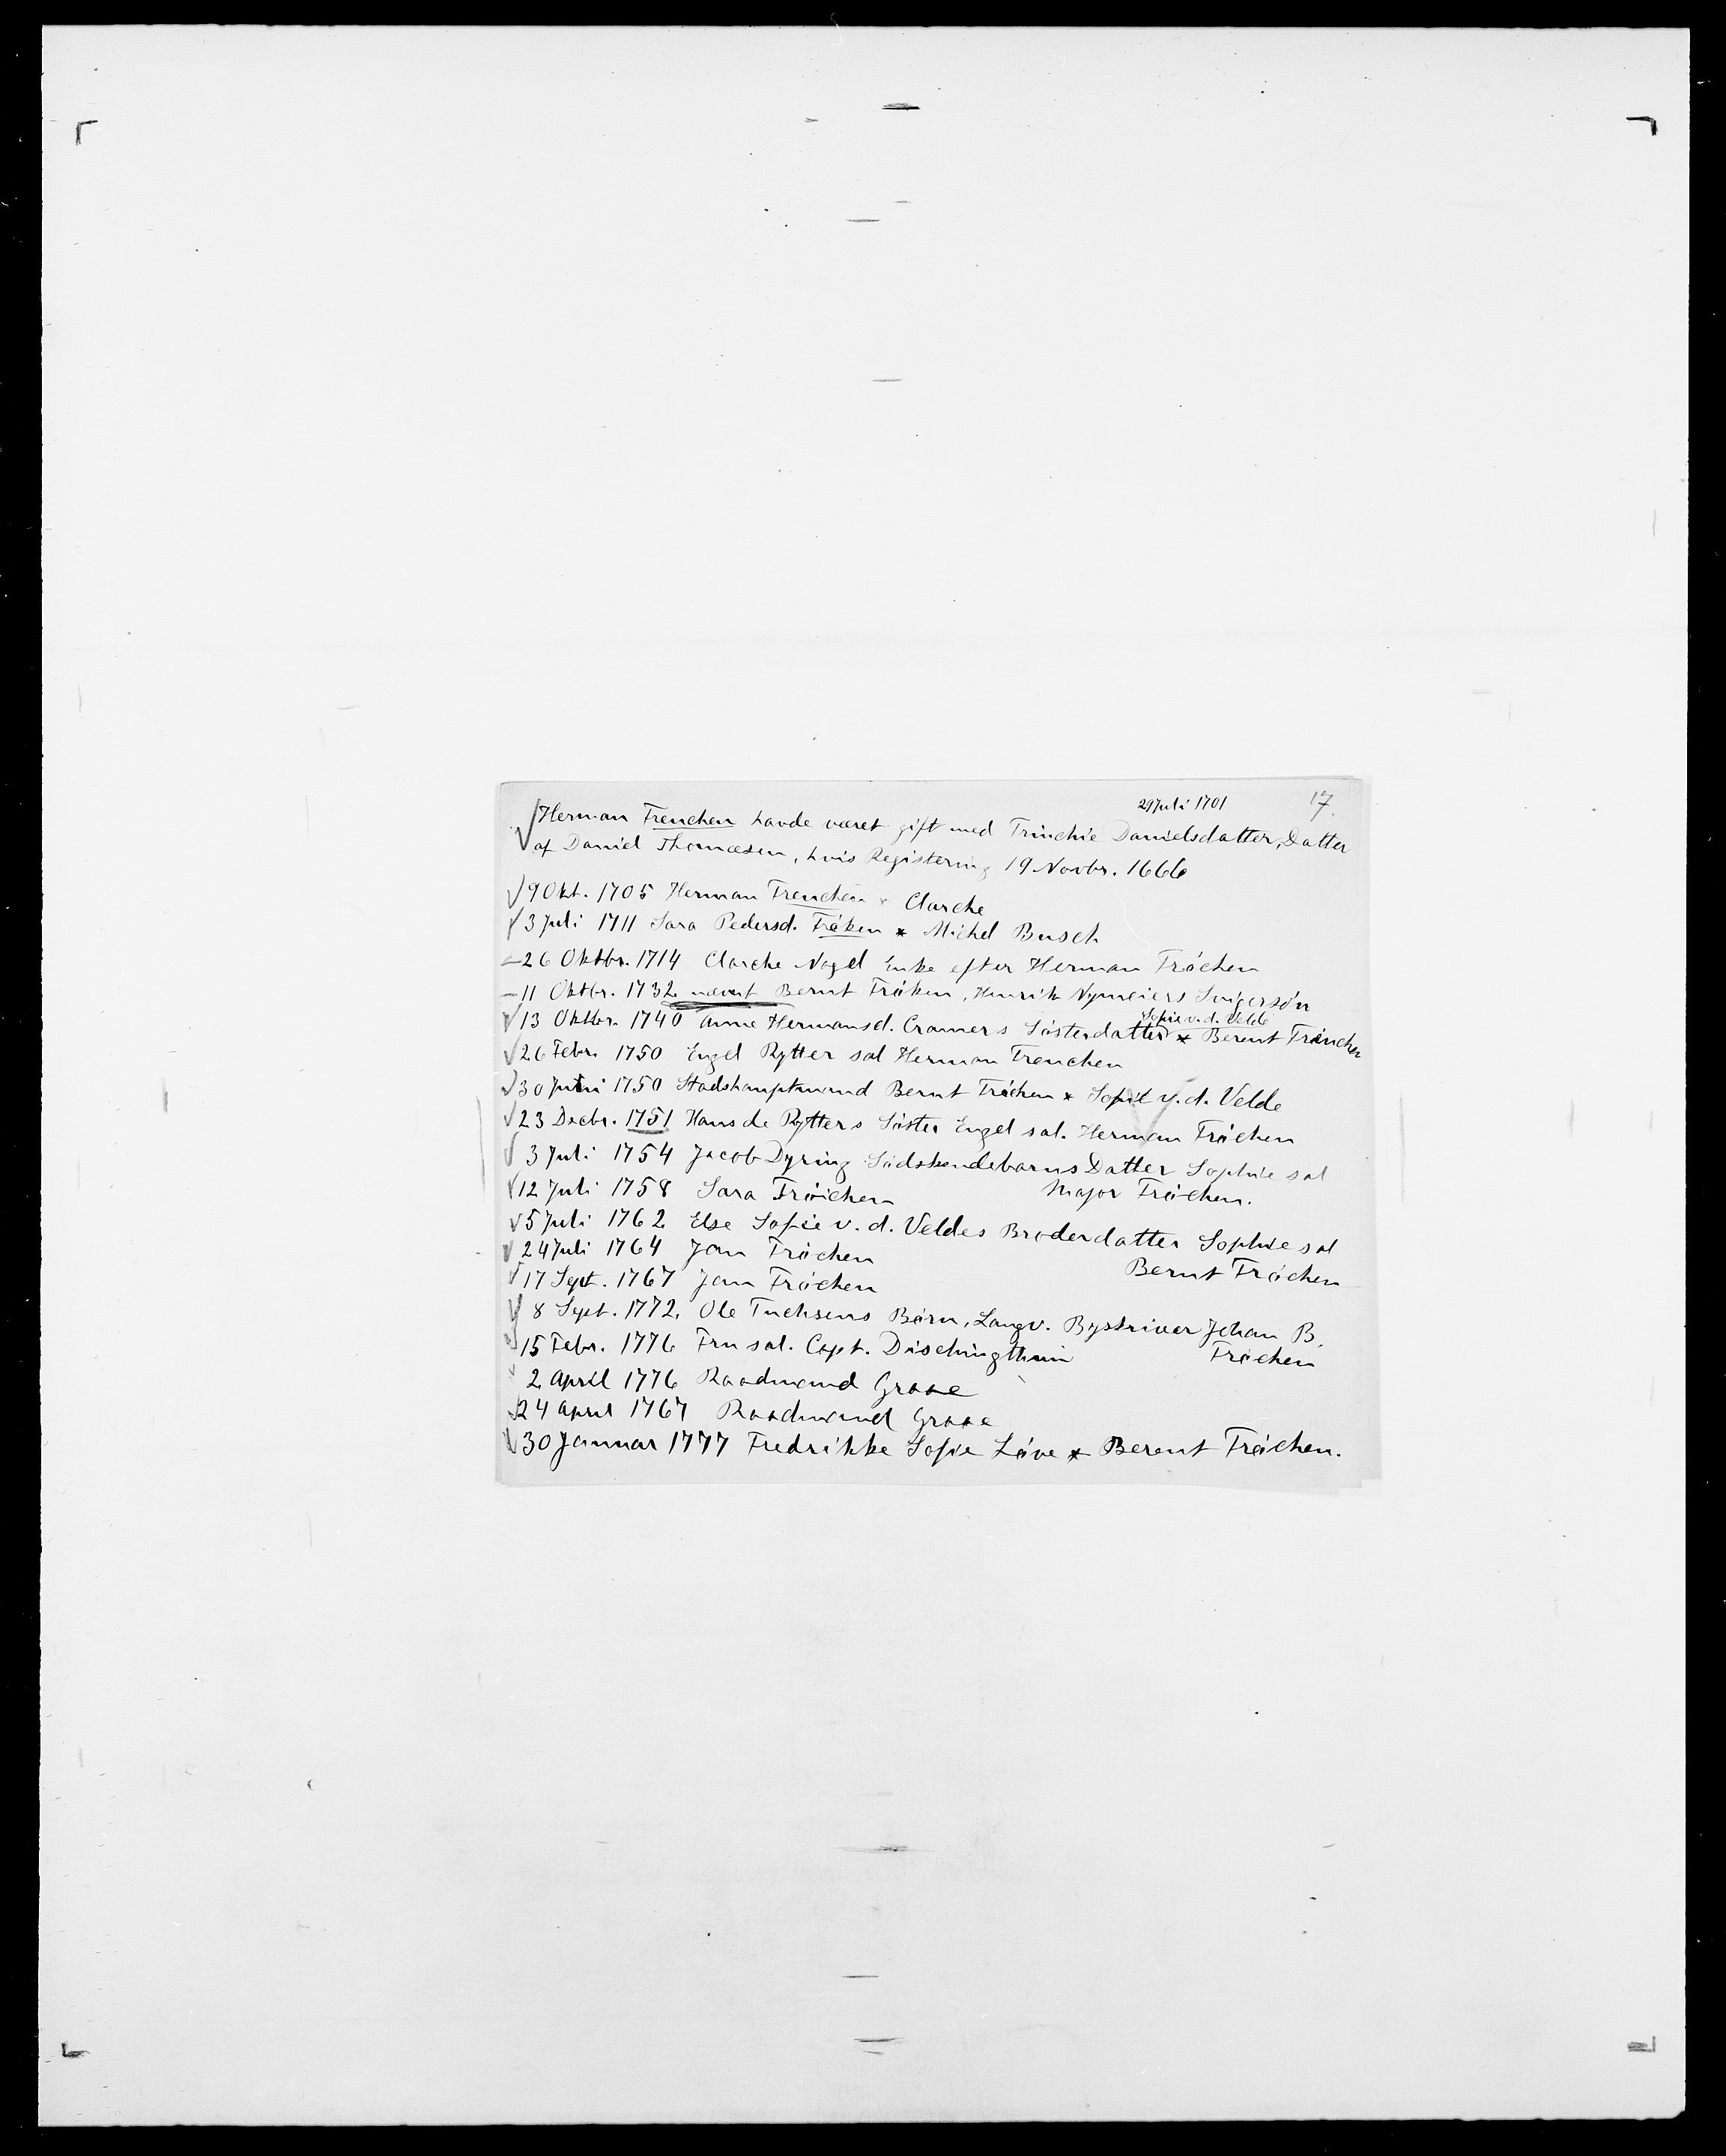 29 Juli 1701 17.
Herman Frenchen havde været gift med Trinchie Danielsdatter, Datter
af Daniel Thomæsen, hvis Registering 19 Novbr. 1666
9 Okt. 1705 Herman Frenchen * Clarche
3 Juli 1711 Sara Pedersd. Fröken * Michel Busch
- 26 Oktbr. 1714 Clarche Nagel Enke efter Herman Fröchen
- 11 Oktbr. 1732 nævnt Bernt Fröken, Henrik Nymeiers Svigersön
Sofie v. d. Velde
13 Oktbr. 1740 Anne Hermansd. Cramers Sösterdatter * Berent Fröncher
26 Febr. 1750 Engel Rytter sal Herman Frenchen
30 Juni 1750 Stadshauptmand Bernt Fröchen * Sofie v. d. Velde
23 Decbr. 1751 Hans de Rytters Söster Engel sal. Herman Fröchen
3 Juli 1754 Jacob Dyring Södskendebarns Datter Sophie sal
Major Fröchen.
12 Juli 1758 Sara Fröichen
5 Juli 1762 Else Sofie v. d. Veldes Broderdatter Sophie sal
Bernt Fröchen
24 Juli 1764 Jan Fröchen
17 Sept. 1767 Jan Fröchen
8 Sept. 1772, Ole Tuchsens Börn, Laugv. Byskriver Johan B.
Fröchen
15 Febr. 1776 Fru sal. Capt. Dischingthun
2 April 1776 Raadmand Graae
24 April 1767 Raadmand Graae
30 Januar 1777 Fredrikke Sofie Löve * Berent Fröichen.